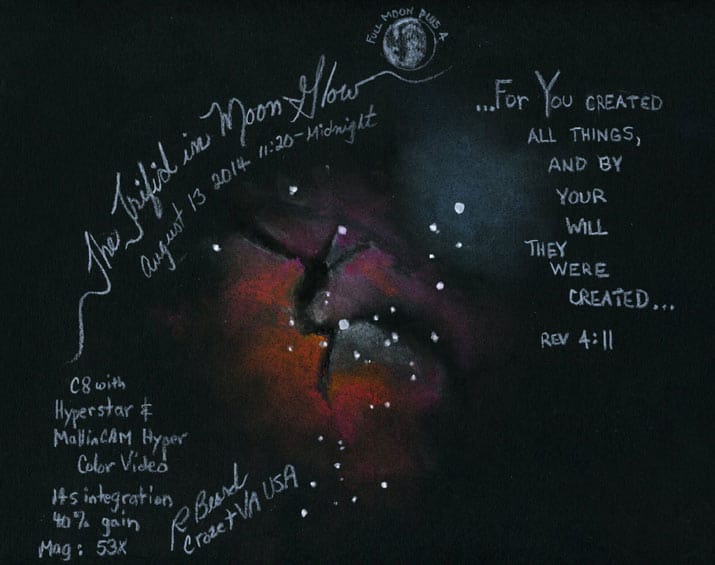 FULL MOON PLUS 4
The Trifid in Moon Glow
August 13 2014 11:20-Midnight
...For You CREATED
ALL THINGS,
AND BY
YOUR
WILL
THEY
WERE
CREATED...
REV 4:11
C8 with
Hyperstar &
MallinCAM Hyper
Color Video
14s integration
40% gain
Mag: 53X
R Beard
Crozet VA USA